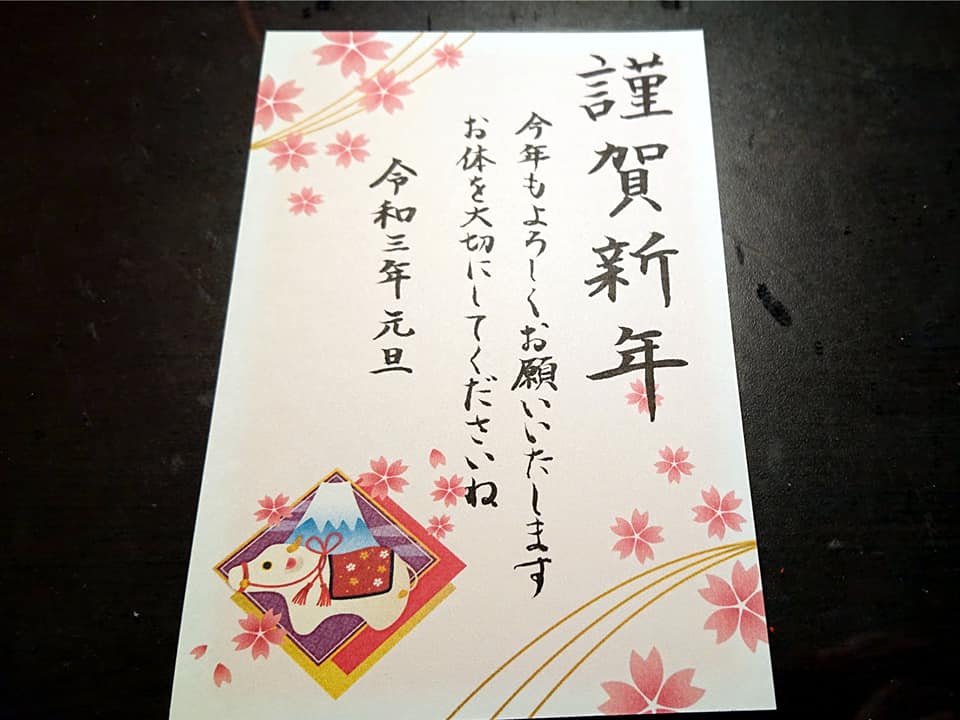 謹賀新年
今年もよろしくお願いいたします
お体を大切にしてくださいね
令和三年元旦